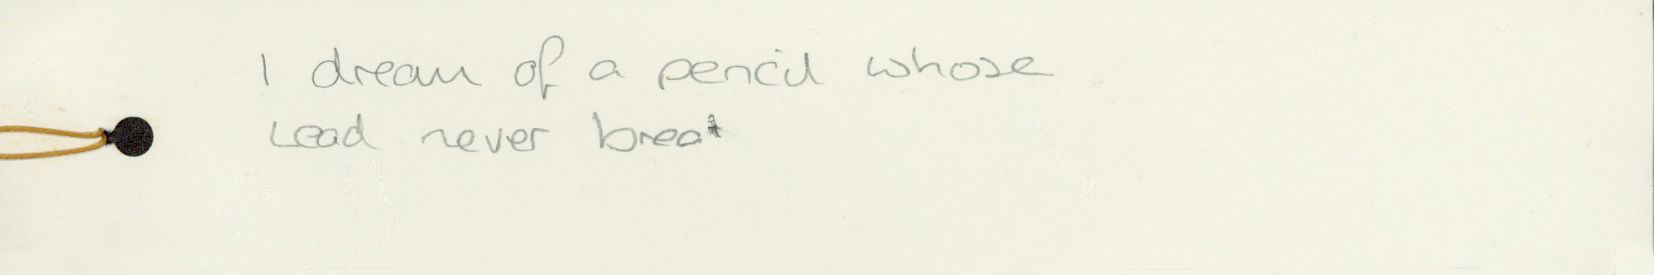 I dream of a pencil whose
Lead never brea